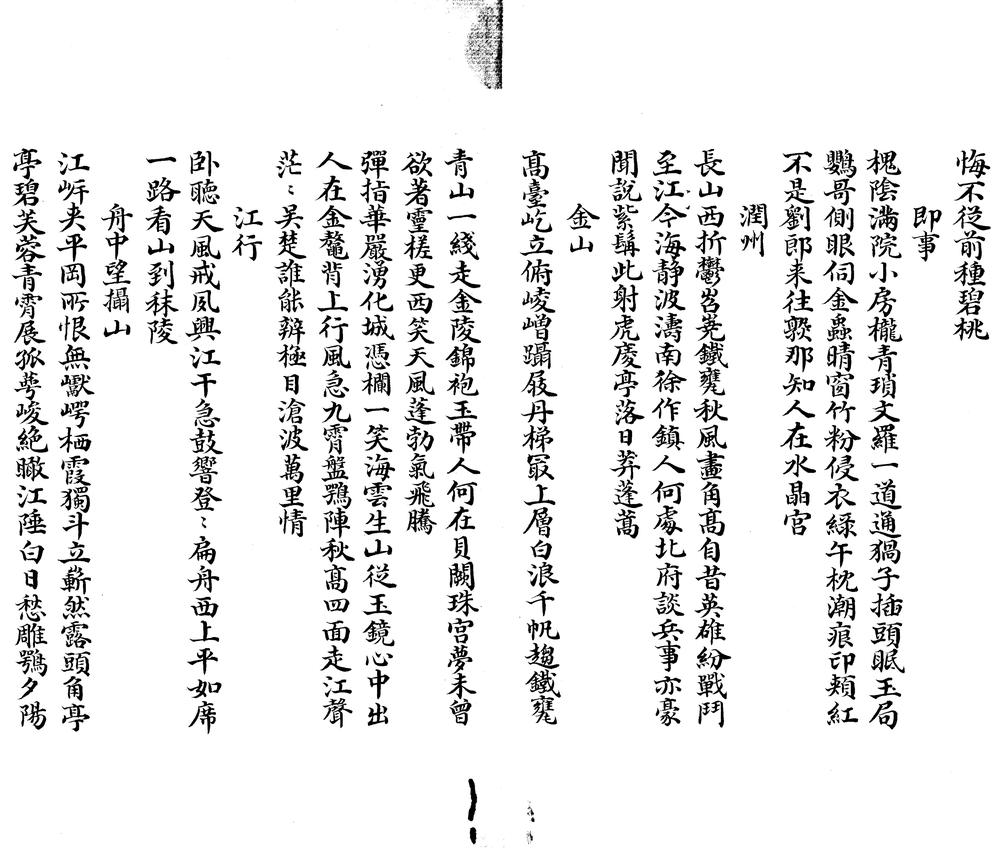 悔不從前種碧桃
即事
槐陰滿院小房櫳青瑣文羅一道通猧子插頭眠玉局
鸚哥側眼伺金蟲晴窗竹粉侵衣綠午枕潮痕印頰紅
不是劉郎来往𭣧那知人在水晶宮
潤州
長山西折鬱岧嶤鐵甕秋風畫角髙自昔英雄紛戰鬥
至江今海静波濤南徐作鎮人何處北府談兵事亦豪
聞說紫髯此射虎慶亭落日莽蓬蒿
金山
髙臺屹立俯崚嶒躡屐丹梯㝡上層白浪千帆趨鐵甕
青山一綫走金陵錦袍玉帶人何在貝闕珠宮夢未曾
欲著靈槎更西笑天風蓬勃氣飛騰
彈指華嚴湧化城憑欄一笑海雲生山從玉鏡心中出
人在金鼇背上行風急九霄盤鶚陣秋髙四面走江聲
茫〻吴楚誰能辨極目滄波萬里情
江行
卧聽天風戒夙興江干急鼓響登〻扁舟西上平如席
一路看山到秣陵
舟中望攝山
江㟁夾平岡所恨無巘崿栖霞獨斗立嶄然露頭角亭
亭碧芙蓉青霄展孤萼峻絕瞰江陲白日愁雕鶚夕陽